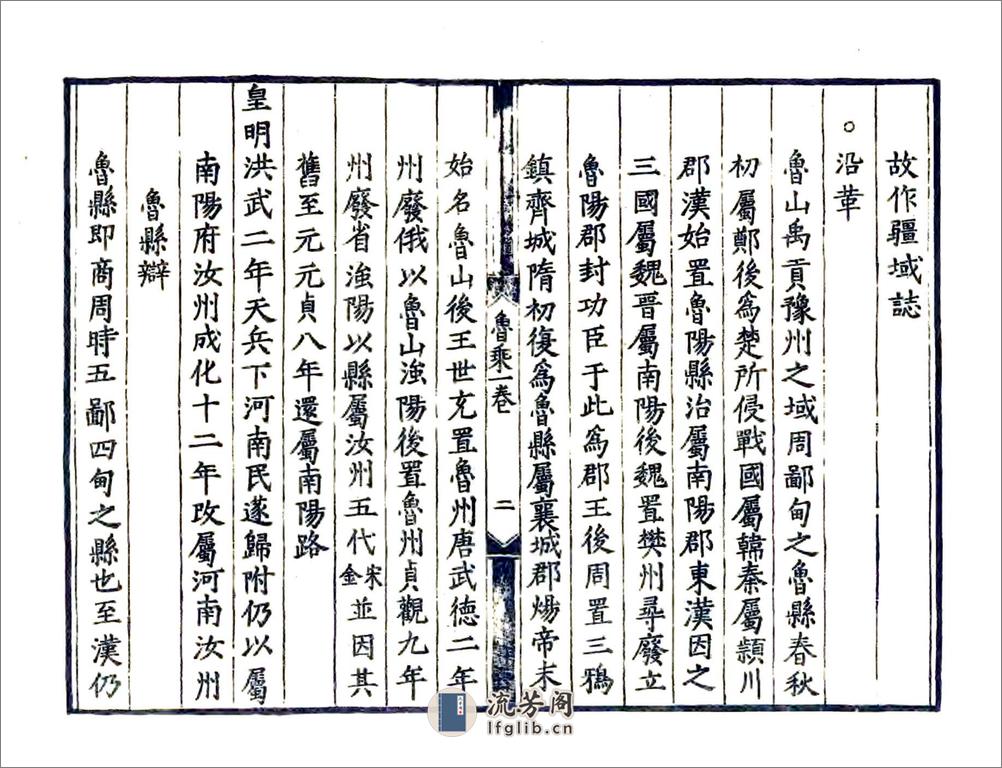 故作疆域誌
○沿革
魯山禹貢豫州之域周鄙甸之魯縣春秋
初屬鄭後為楚所侵戰國屬韓秦屬潁川
郡漢始置魯陽縣治屬南陽郡東漢因之
三國屬魏晉屬南陽後魏置樊州尋廢立
魯陽郡封功臣于此為郡王後周置三鴉
鎮齊城隋初復為魯縣屬襄城郡煬帝末
魯乘一卷
二
始名魯山後王世充置魯州唐武德二年
州廢俄以魯山滍陽後置魯州貞觀九年
州廢省滍陽以縣屬汝州五代宋金並因其
舊至元元貞八年還屬南陽路
皇明洪武二年天兵下河南民遂歸附仍以屬
南陽府汝州成化十二年改屬河南汝州
魯縣辯
魯縣即商周時五鄙四甸之縣也至漢仍
流芳阁
lfglib.cn